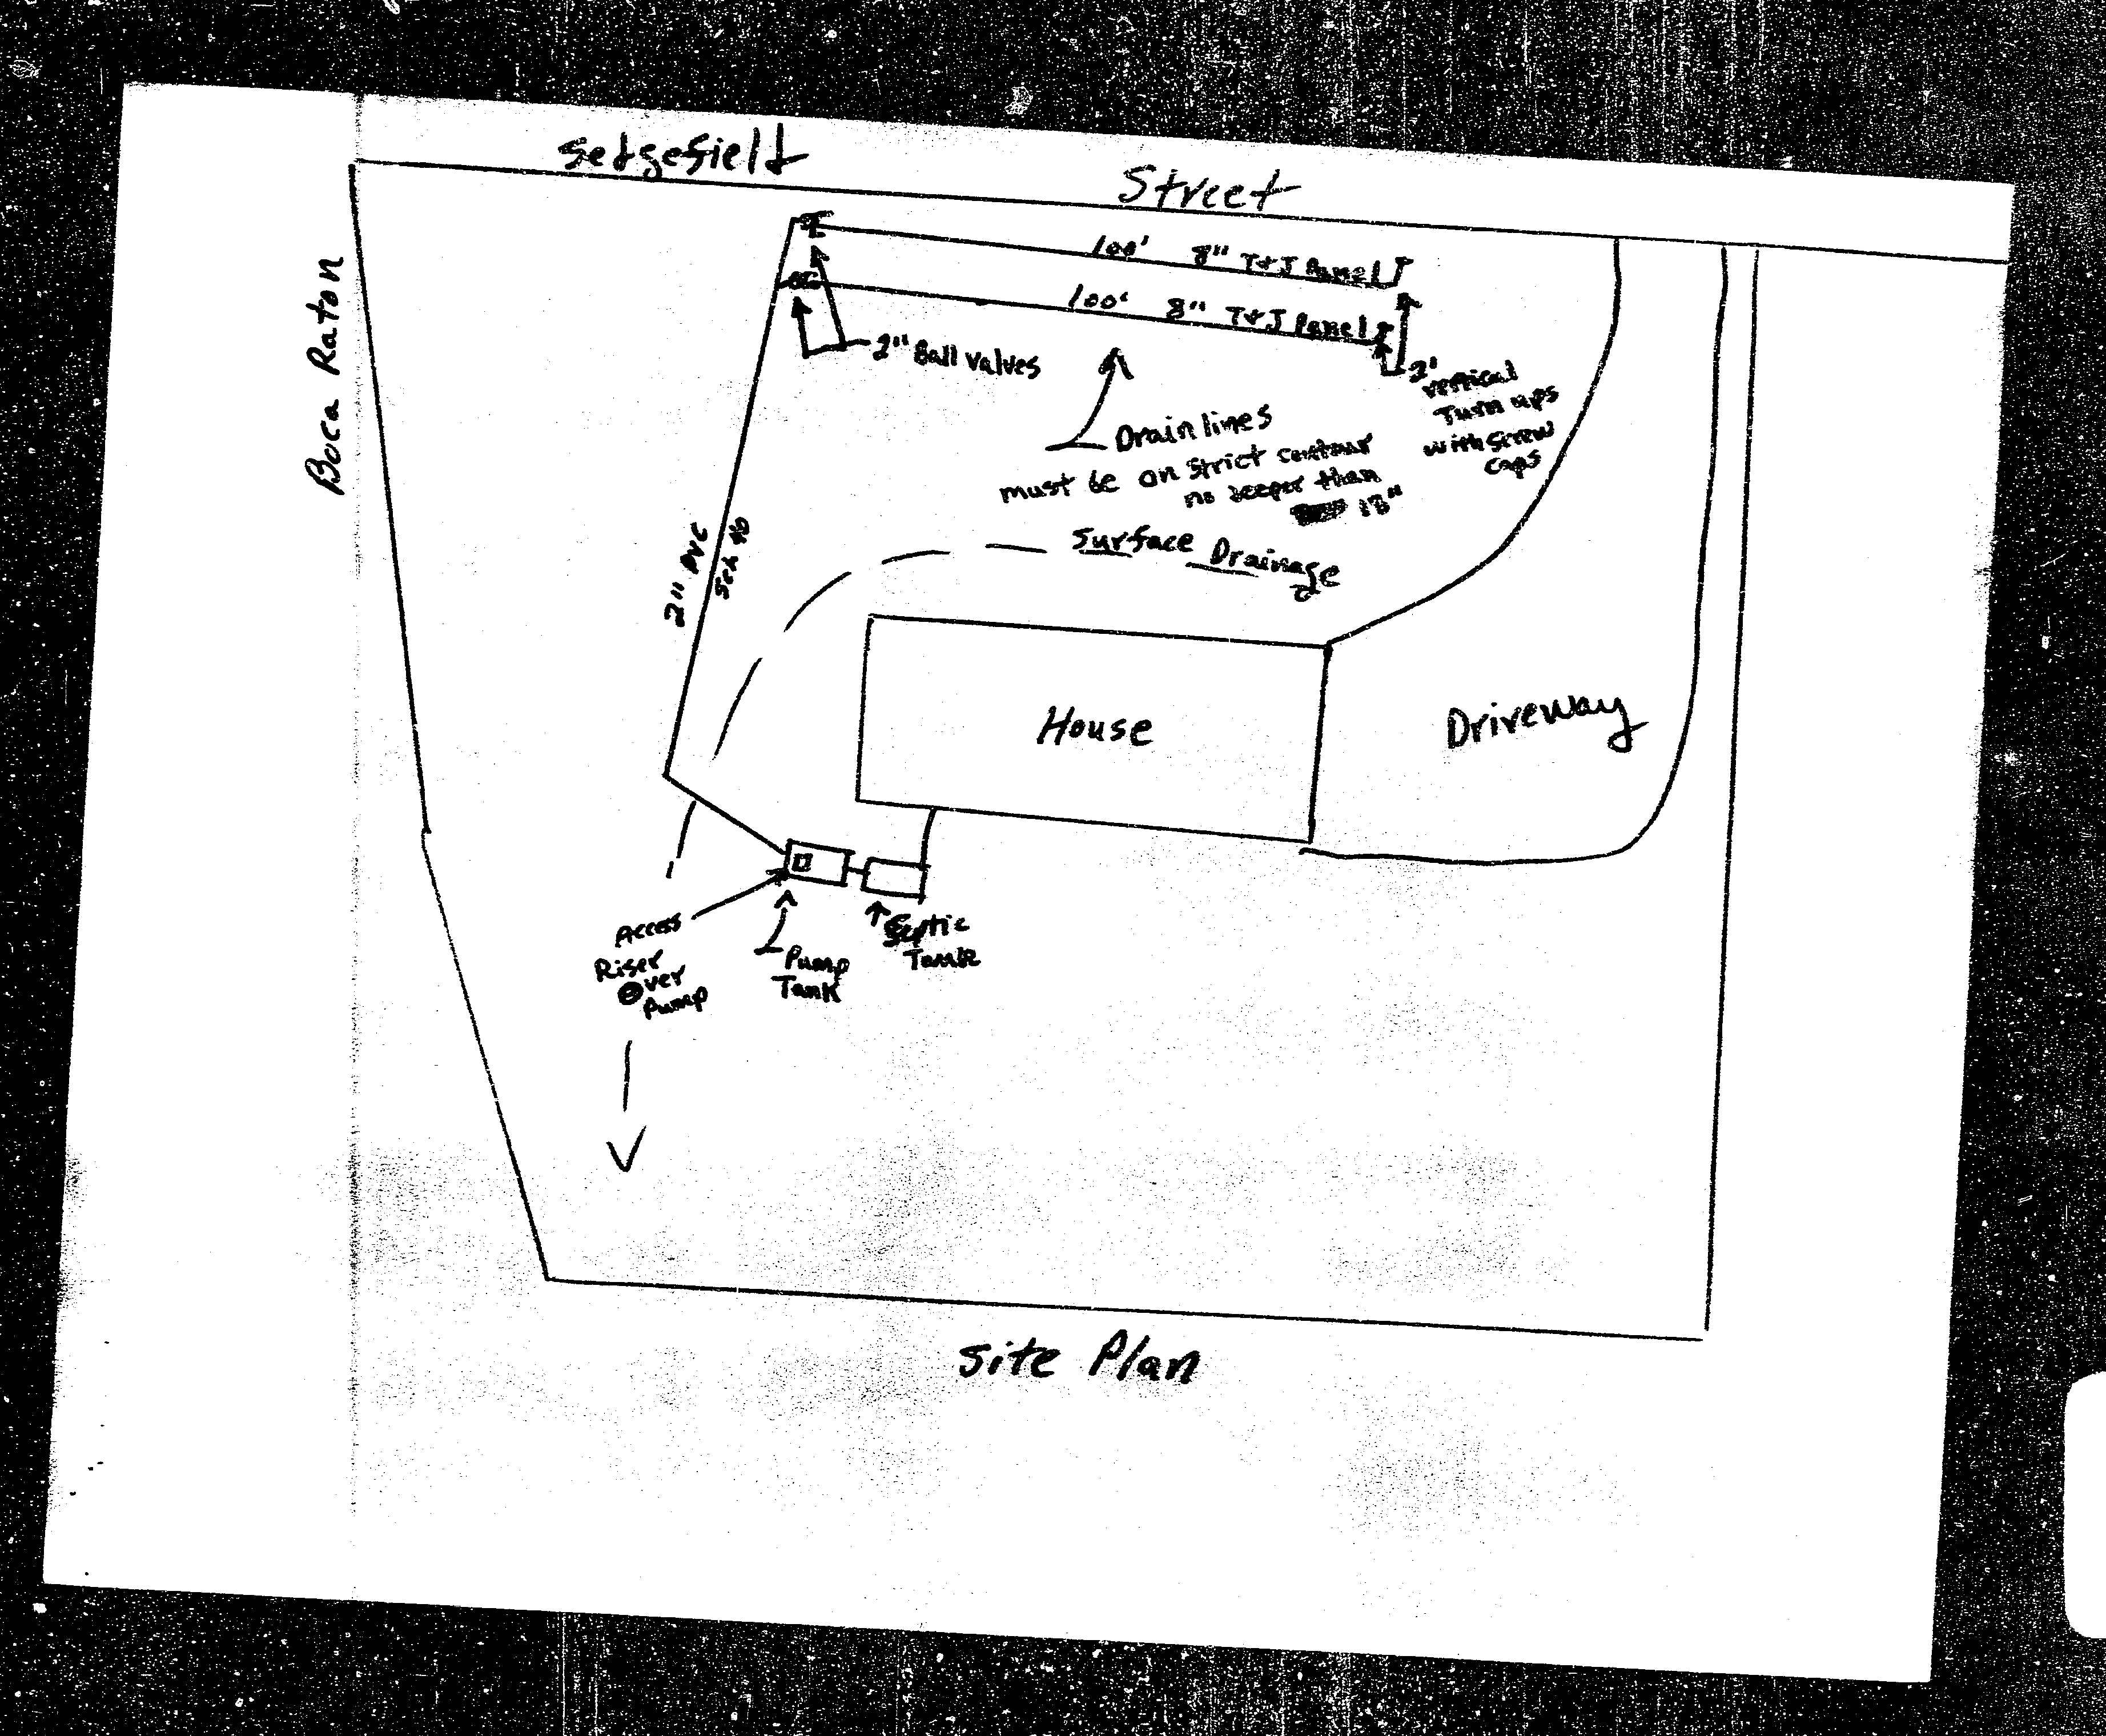 Sedgefield Street
Boca Raton
100' 8" T&J Panel
100' 8" T&J Panel
2" Ball valves
2'
vertical
Turn ups
with screw
caps
Drain lines
must be on strict contour
no deeper than
18"
Surface Drainage
2" PVC
Sch 40
House
Driveway
Access
Riser
Over
Pump
Pump
Tank
Septic
Tank
Site Plan